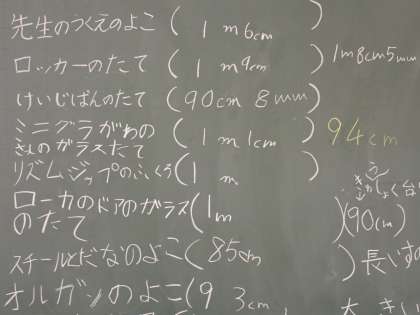 先生のつくえのよこ (1m6cm)
ロッカーのたて (1m9cm) 1m8cm5mm
けいじばんのたて (90cm 8mm)
ミニグラがわの
きょのガラスたて (1m1cm) 94cm
リズムジャプのふくろ (1m)
ローカのドアのガラス (1m
のたて )(90cm)
スチールとだなのよこ (85cm ) 長いすの
オルガンのよこ (93cm